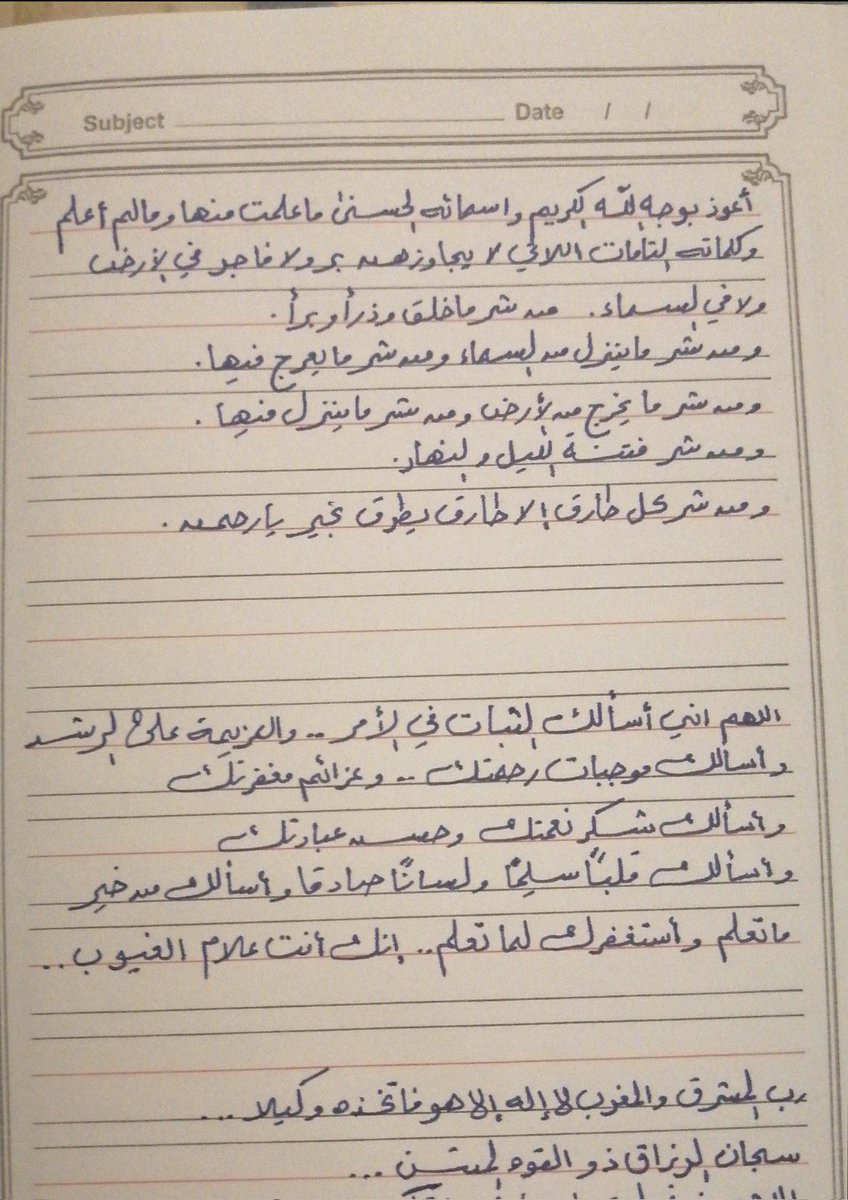 Subject Date / /
أعوذ بوجه الله الكريم واسمائه الحسنى ما علمت منها ومالم أعلم
وكلماته التامات اللاتي لا يجاوزهن بر ولا فاجر في الأرض
ولا في السماء . من شر ما خلق وذرأ وبرأ .
ومن شر ما ينزل من السماء ومن شر ما يعرج فيها .
ومن شر ما يخرج من الأرض ومن شر ما ينزل منها .
ومن شر فتنة الليل والنهار .
ومن شر كل طارق إلا طارق يطرق بخير يا رحمن .
اللهم اني أسألك الثبات في الأمر .. والعزيمة على الرشد
وأسالك موجبات رحمتك .. وعزائم مغفرتك
وأسألك شكر نعمتك وحسن عبادتك
وأسألك قلبًا سليمًا ولسانًا صادقا وأسألك من خير
ما تعلم وأستغفرك لما تعلم .. إنك أنت علام الغيوب ..
رب المشرق والمغرب لا إله إلا هو فاتخذه وكيلا ...
سبحان الرزاق ذو القوه المتين ...